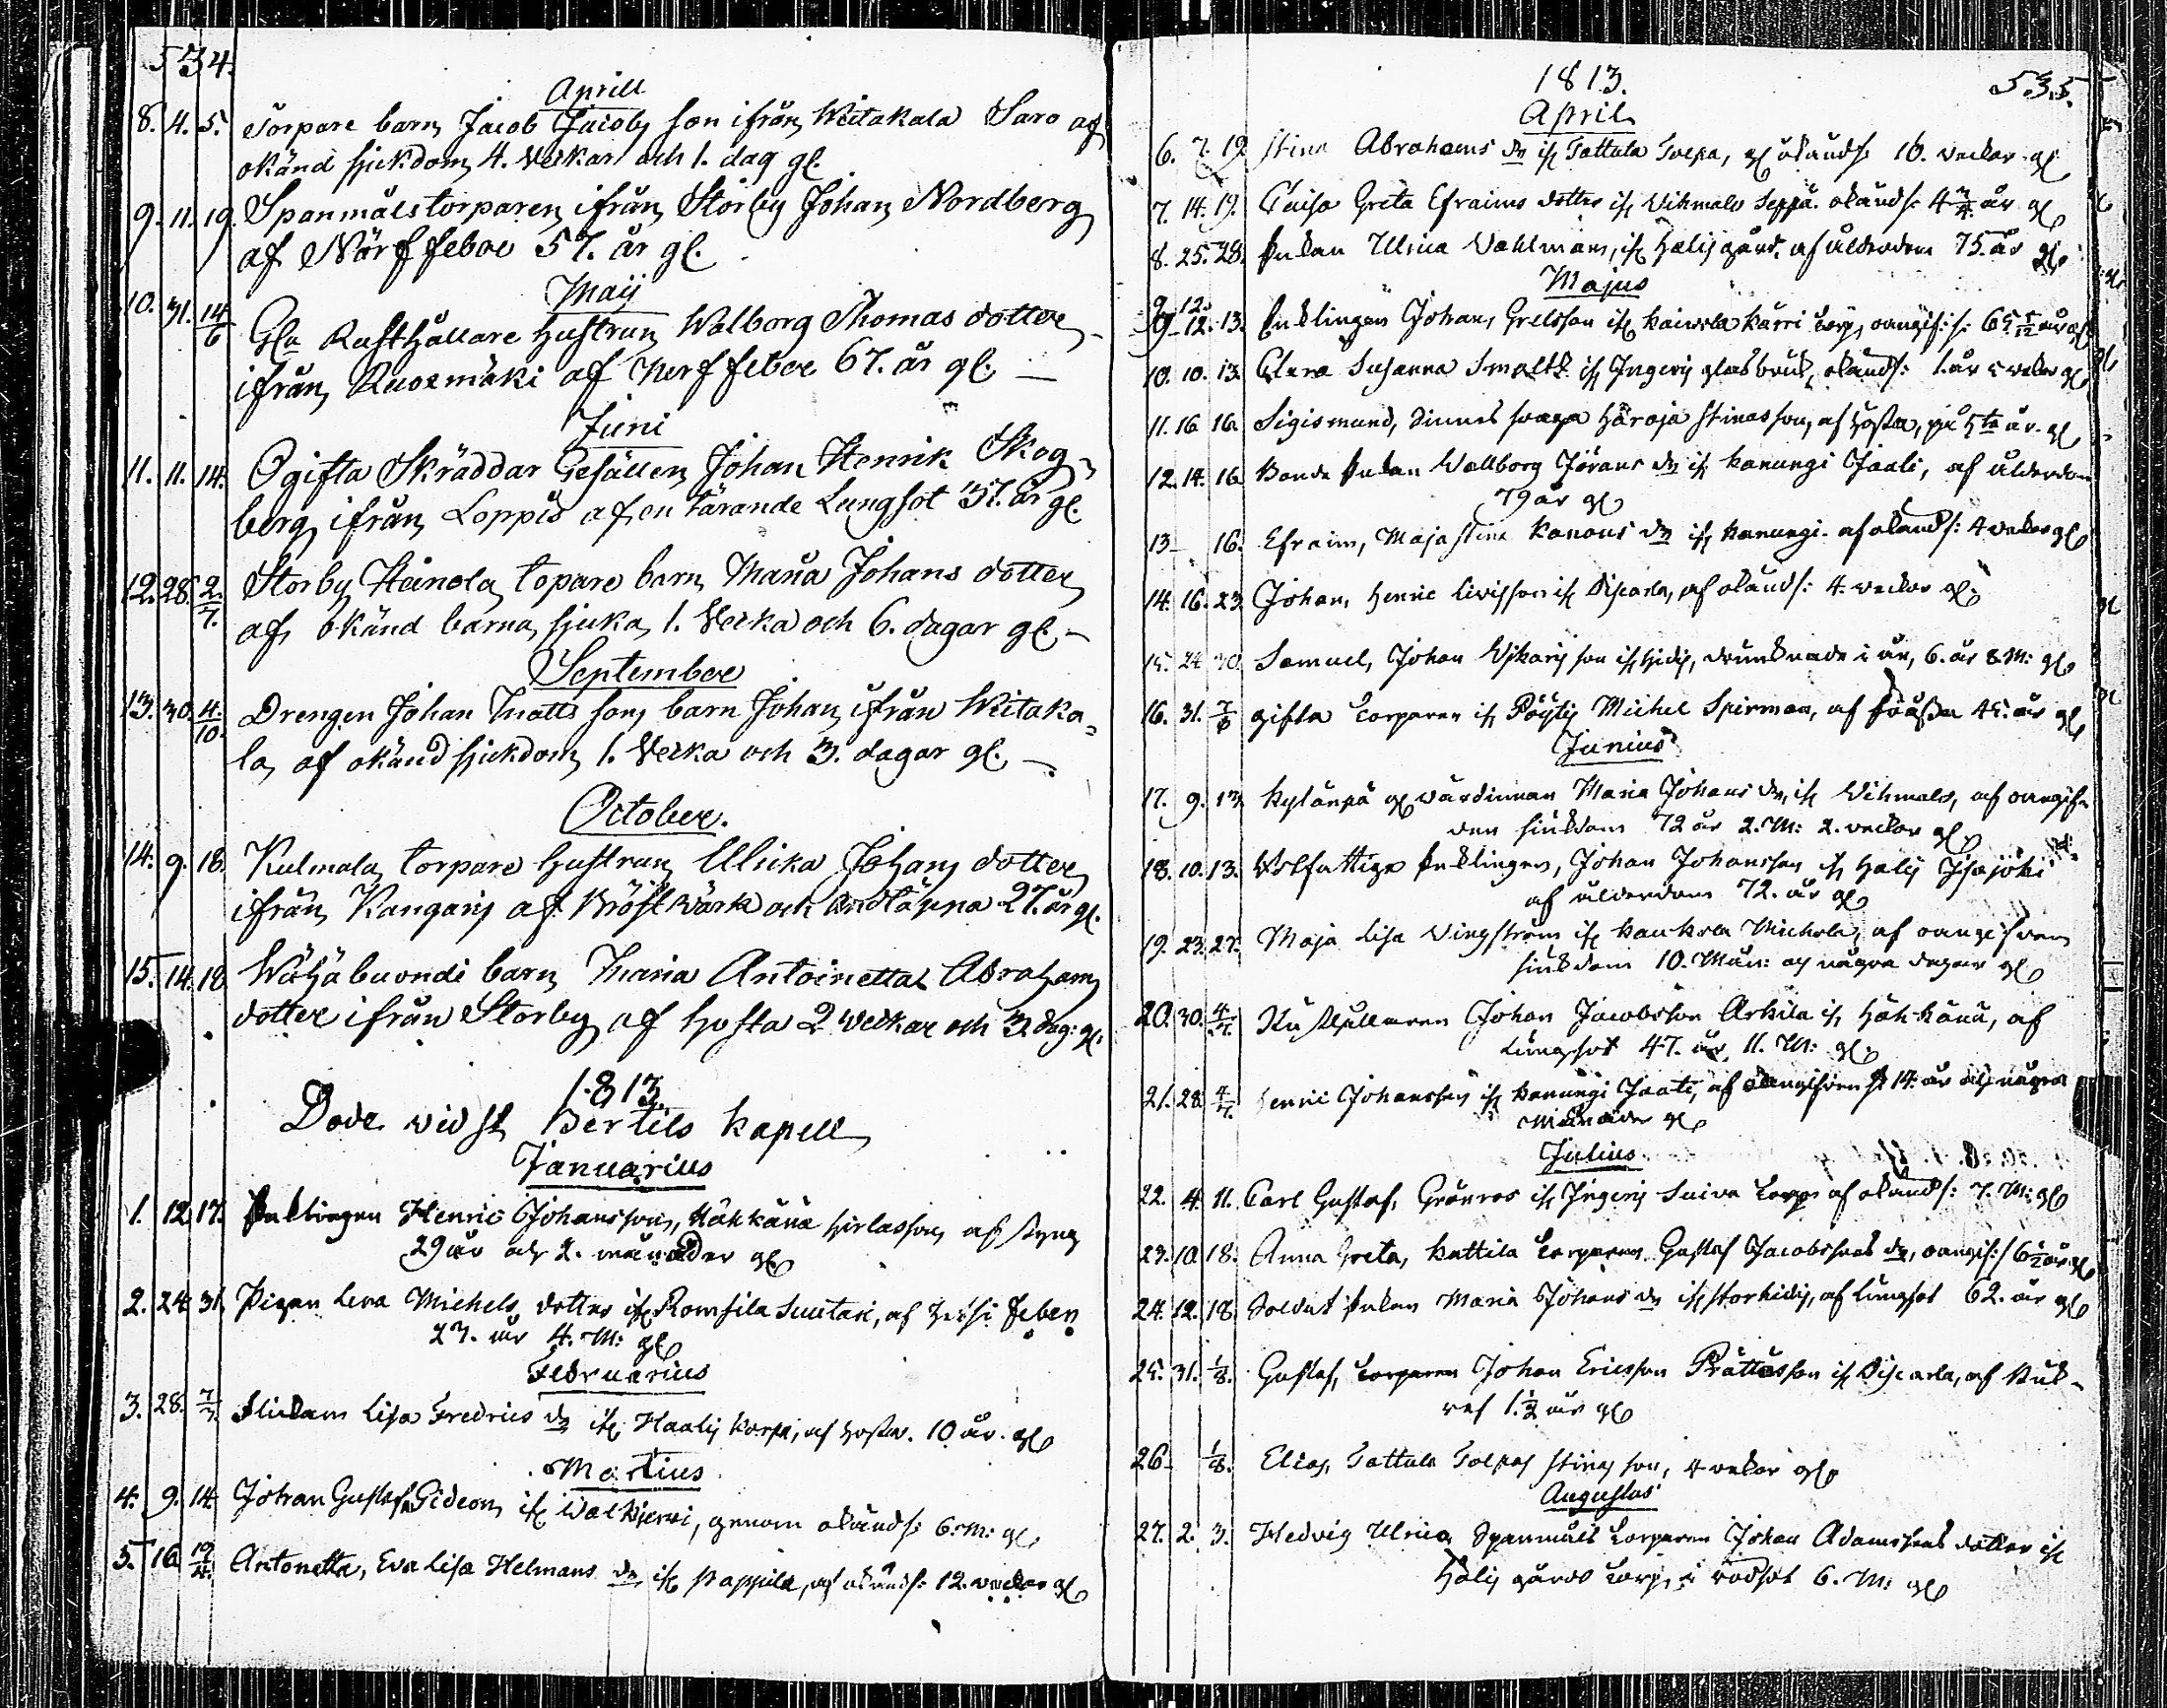 534.
Aprill
8. 4. 5. Torpare barn Jacob Jacobs son ifrån Keitakala Saro af
okänd sjukdom 4. Veckar och 1. dag gl.
9. 11. 19. Spanmålstorparen ifrån Storby Johan Nordberg
af Närffeber 57. år gl.
Maij
10. 31. 14/6 Gla Rusthållare hustrun Walborg Thomas dotter
ifrån Ruosmäki af Nerffeber 67. år gl.
Juni
11. 11. 14. Ogifta Skräddar Gesällen Johan Henrik Skog-
berg ifrån Loppis af en tärande Lungsot 37. år gl.
12. 28. 2/7. Storby Heinola topare barn Maria Johans dotter
af okänd barna sjuka 1. Vecka och 6. dagar gl.
September
13. 30. 4/10. Drengen Johan Matts sons barn Johan ifrån Keitaka-
la af okänd sjukdom 1. Vecka och 3. dagar gl.
October.
14. 9. 18. Kulmala torpare hustrun Ulrika Johans dotter
ifrån Kangais af Bröstwärk och andtäppa 27. år gl.
15. 14. 18 Wähäbuondi barn Maria Antoinetta Abrahams
dotter ifrån Storby af hosta 2 veckar och 3. dag: gl.
1813.
Döde wid St. Bertils kapell
Januarius
1. 12. 17. Henric Johansson, Häkkänä af
29 år och 2. månader gl
2. 24. 31. Pigan Lena Michels dotter ifr. Romsila Suutari, af feber
23. år 4. M: gl
Februarius
3. 28. 7/3. Flickan Lisa Fredrics dr ifr. Haalis Korpi, af hosta. 10 år. gl
Martius
4. 9. 14. Johan Gustaf Gideon, ifr. Walkjerwi, genom okänd s: 6. M: gl
5. 16. Antonetta, Eva Lisa Helmans dr ifr. Pappila, af okänd s: 12. veckor gl
1813.
535.
April
6. 7. 19. Stina Abrahams dr ifr. Tattula Tolpa, af okänd s: 16. veckor gl
7. 14. 19. Caisa Greta Efraims dotter ifr. Vihmalo Seppä okänd s: 4 3/4 år gl
8. 25. 28. Enkan Ulrica Wahlman, ifr. Halis gård, af ålderdom 75. år gl.
Majus
9. 12. 13. Enklingen Johan, Grelsson ifr. Kairola Kärri torp, oangif: s: år gl
10. 10. 13. Clara Susanna Smaltz ifr. Ingeris glasbruk, okänd s: 1. år veckor gl
11. 16. 16. Sigismund, Häroja Stinas son, af hosta, på 5te år. gl
12. 14. 16. Bonde Enkan Wallborg Jörans dr ifr. Kanungi Jaali, af ålderdom
79 år gl
13. 16. Efraim, Maja Stina Kanons dr ifr. Kanungi af okänd s: 4 veckor gl
14. 16. 23. Johan, Henric ifr. af okänd s: 4. veckor gl.
15. 24. 30. Samuel, Johan son ifr. Hidis, drunknade i ån, 6. år 8. M: gl
16. 31. 7/6 gifta Torparen ifr. Pöytis Michel Spirman, af fråssa 45. år gl
Junius
17. 9. 13. Kylänpä gl. wärdinnan Maria Johans dr, ifr. Vihmalo, af oangif-
ven sjukdom 72 år 2. M: 2. veckor gl
18. 10. 13. Utfattige Enklingen, Johan Johansson ifr. Halis Isojoki
af ålderdom 72. år gl
19. 23. 27. Maja Lisa Vingström ifr. Kaukola Michola, af oangifven
sjukdom 10. Mån: och några dagar gl
20. 30. 4/7. Rusthållaren Johan Jacobsson Arkila ifr. Häkkänä, af
lungsot 47. år, 11. M: gl.
21. 28. 4/7. Henric Johansson ifr. Kanungi Jaali, af oangifven s: 14. år och några
månader gl
Julius
22. 4. 11. Carl Gustaf, Grönros ifr. Ingeris torp af okänd s: 7. M: gl
23. 10. 18. Anna Greta, Kattila Torparen Gustaf Jacobssons dr, oangif: s: 6 1/2 år gl
24. 12. 18. Soldat Enkan Maria Johans dr ifr. Storhidis, af lungsot 62. år gl
25. 31. 1/8. Gustaf, Torparen Johan Ericsson Prättäs son ifr. af kik-
1 1/2 år gl
26. 1/8. Elias, Tattula Tolpas Stinas son, 4 veckor gl
Augustus
27. 2. 3. Hedvig Ulrica, Spanmåls torparen Johan Adamssons dotter ifr.
Halis gårds torp, i rödsot 6. M: gl